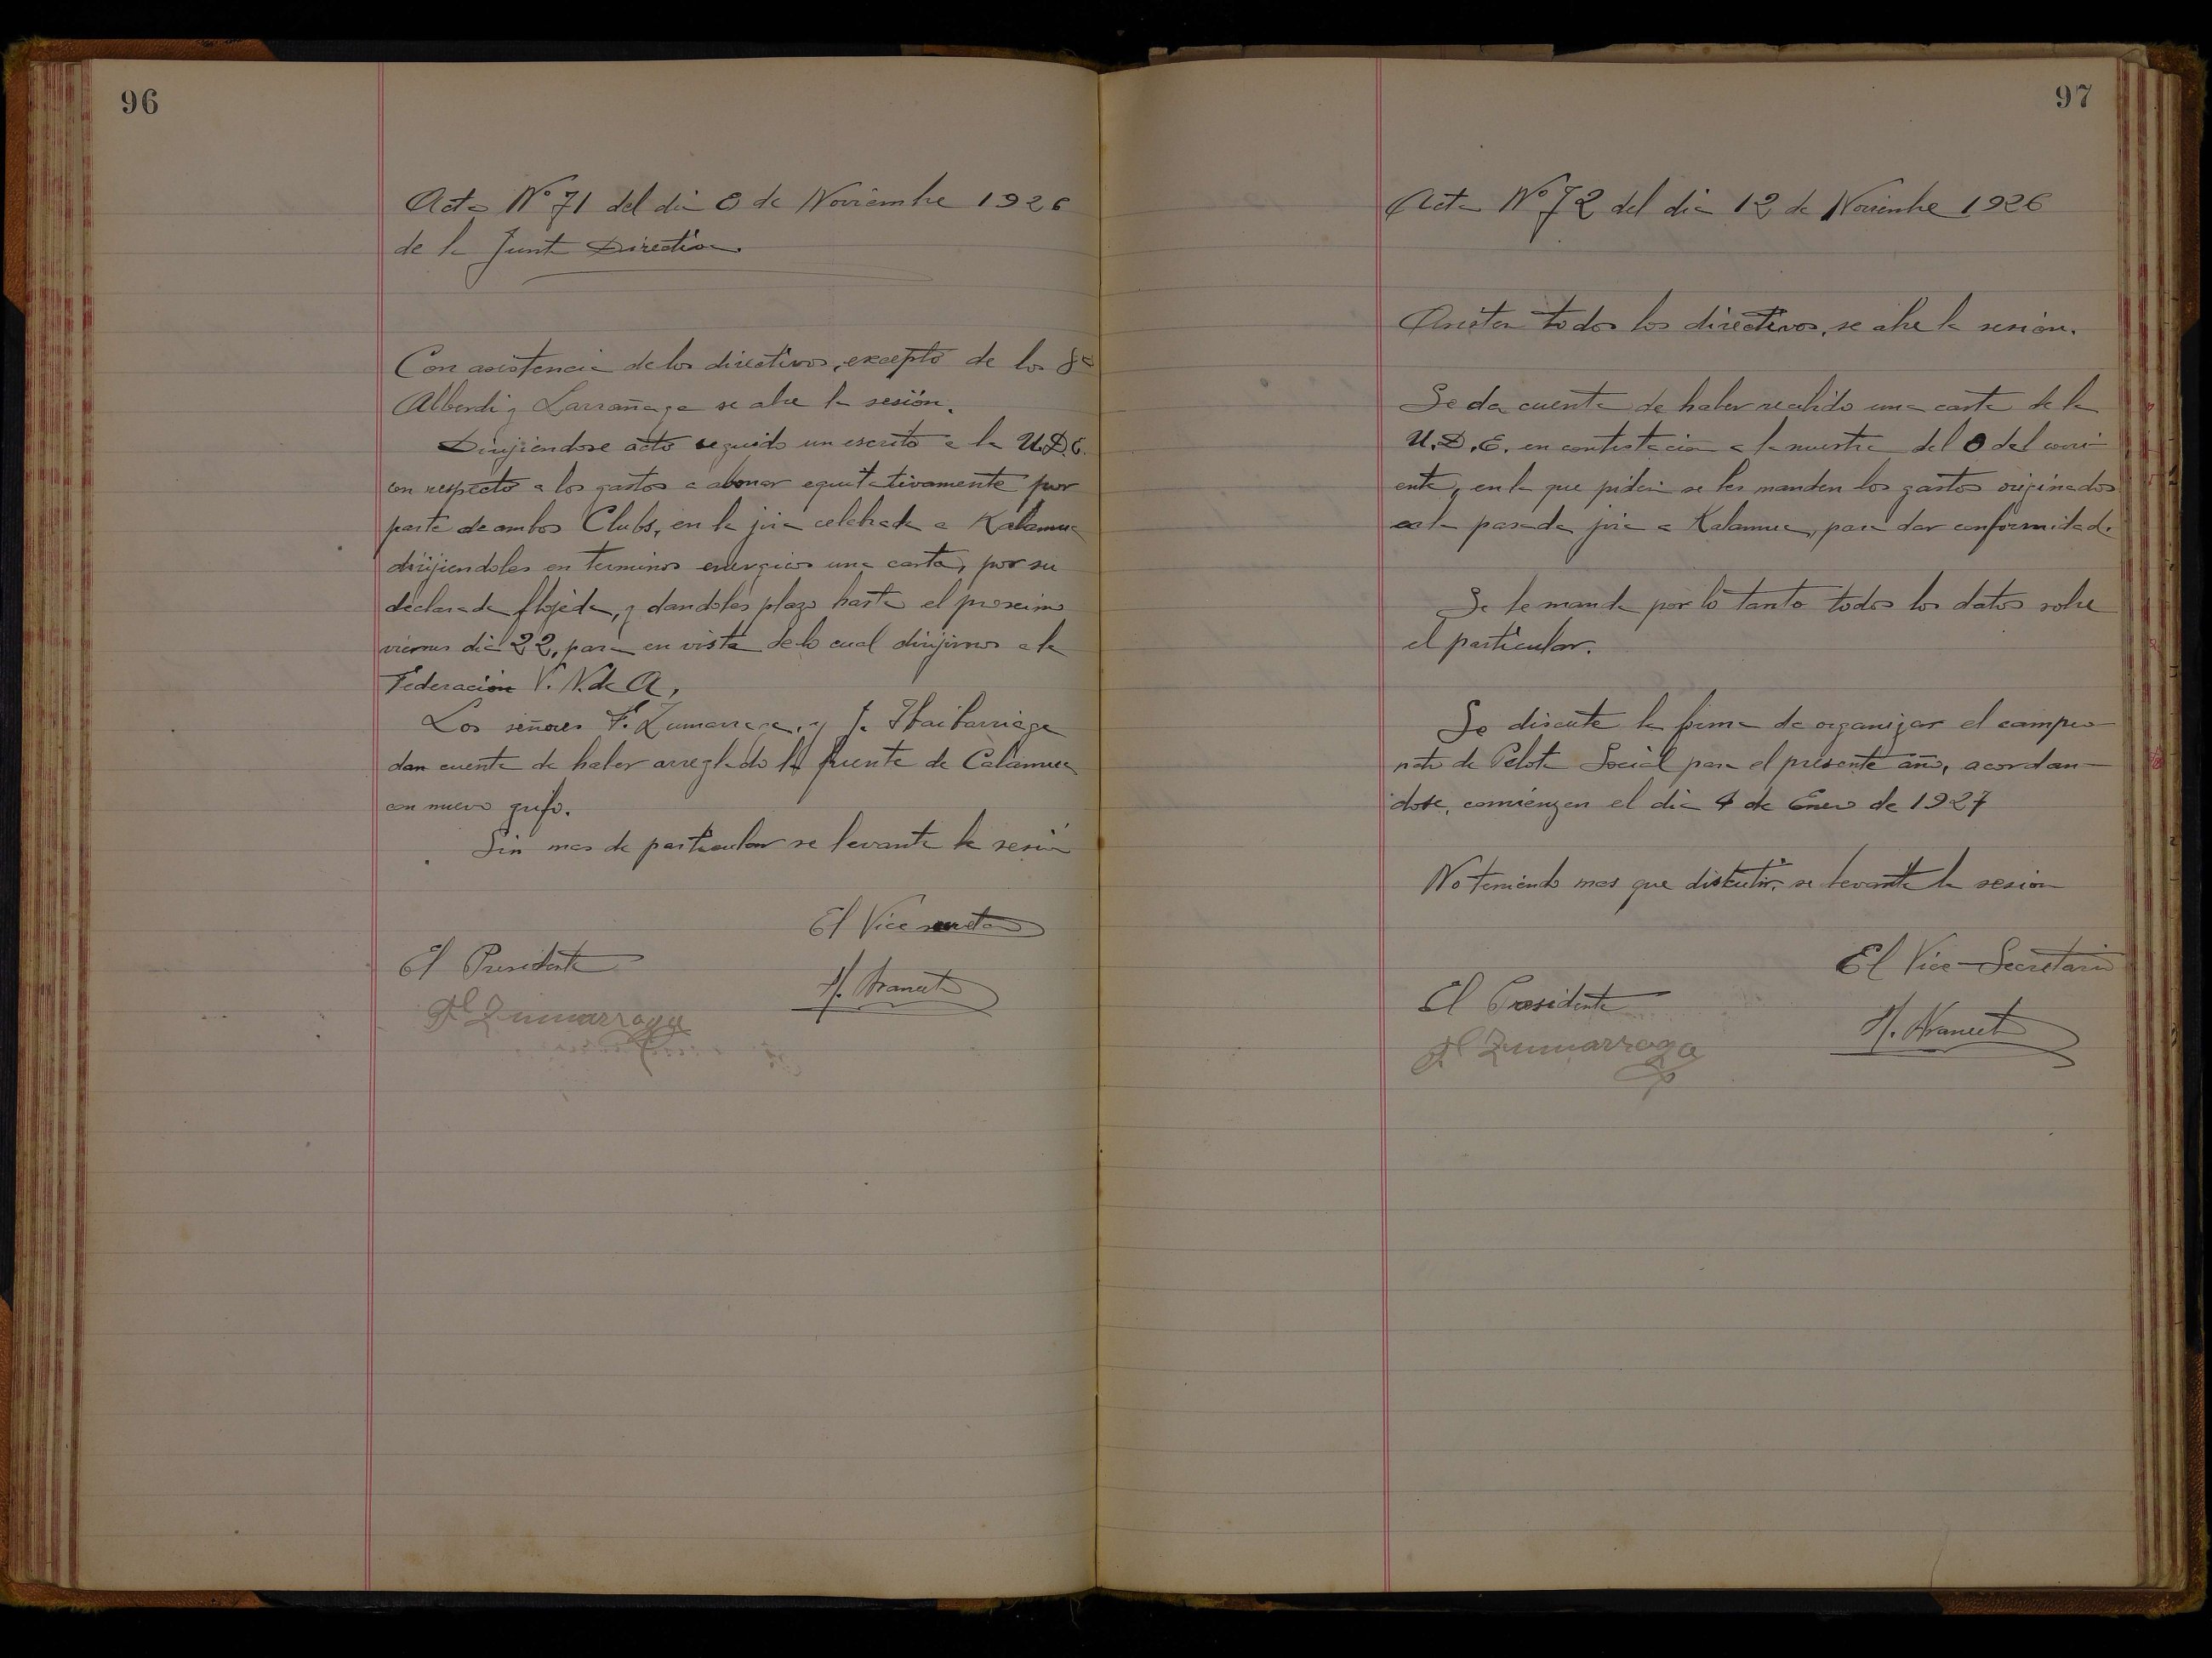 96
Acta Nº 71 del dia 8 de Noviembre 1926
de la Junta Directiva
Con asistencia de los directivos, excepto de los Srs
Alberdi y Larrañaga se abre la sesión.
Dirijiendose acto seguido un escrito a la U.D.E.
con respecto a los gastos a abonar equitativamente por
parte de ambos Clubs, en la jira celebrada a Kalamua
dirijiendoles en terminos energicos una carta, por su
declarada flojeda, y dandoles plazo hasta el proximo
viernes dia 22, para en vista de lo cual dirijirnos a la
Federación V. N. de A,
Los señores F. Zumarraga, y J. Ibaibarriaga
dan cuenta de haber arreglado la fuente de Calamua
con nuevo grifo.
Sin mas de particular se levanta la sesión
El Vice secretario
El Presidente
H. Araneta
F Zumarraga
97
Acta Nº 72 del dia 12 de Noviembre 1926
Asisten todos los directivos, se abre la sesión.
Se da cuenta de haber recibido una carta de la
U.D.E. en contestación a la nuestra del 8 del corri-
ente, en la que piden se les manden los gastos originados
en la pasada jira a Kalamua, para dar conformidad.
Se le manda por lo tanto todos los datos sobre
el particular.
Se discute la forma de organizar el campeo-
nato de Pelota Social para el presente año, acordan-
dose, comienzen el dia 4 de Enero de 1927
No teniendo mas que discutir, se levanta la sesión
El Vice-Secretario
El Presidente
H. Araneta
F Zumarraga